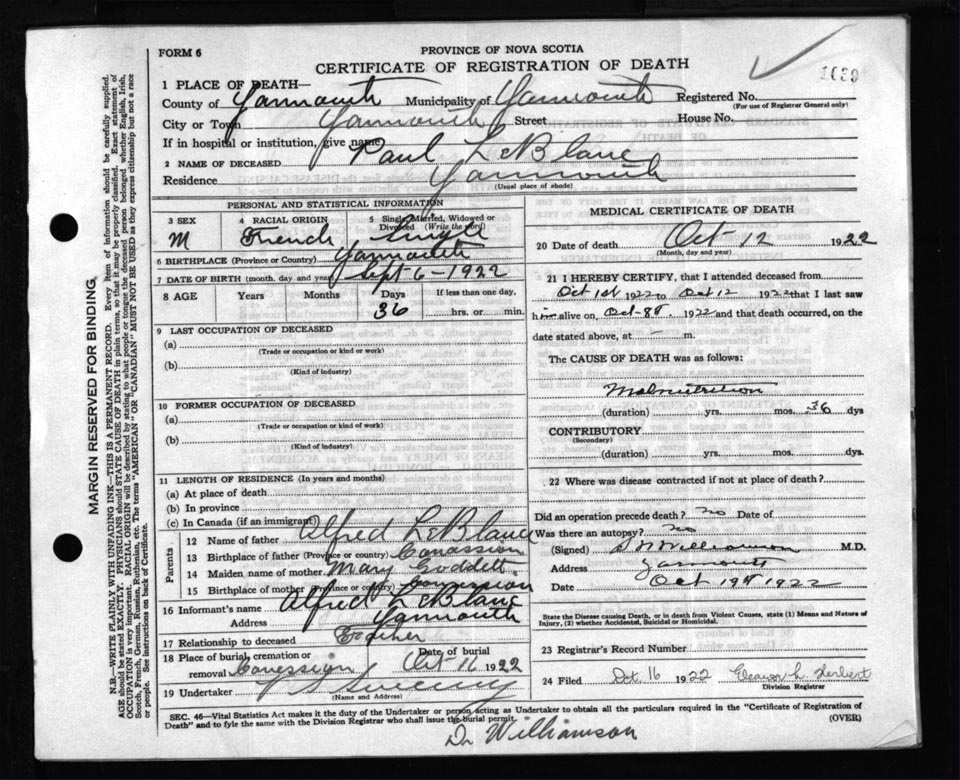 FORM 6
PROVINCE OF NOVA SCOTIA
CERTIFICATE OF REGISTRATION OF DEATH
1639
1 PLACE OF DEATH—
County of Yarmouth Municipality of Yarmouth Registered No.
(For use of Registrar General only)
City or Town Yarmouth Street House No.
If in hospital or institution, give name
2 NAME OF DECEASED Paul LeBlanc
Residence Yarmouth
(Usual place of abode)
PERSONAL AND STATISTICAL INFORMATION
3 SEX 4 RACIAL ORIGIN 5 Single, Married, Widowed or Divorced (Write the word)
M French Single
6 BIRTHPLACE (Province or Country) Yarmouth
7 DATE OF BIRTH (month, day and year) Sept 6-1922
8 AGE Years Months Days If less than one day,
36 hrs. or min.
9 LAST OCCUPATION OF DECEASED
(a)
(Trade or occupation or kind or work)
(b)
(Kind of industry)
10 FORMER OCCUPATION OF DECEASED
(a)
(Trade or occupation or kind or work)
(b)
(Kind of industry)
11 LENGTH OF RESIDENCE (In years and months)
(a) At place of death
(b) In province
(c) In Canada (if an immigrant)
Parents
12 Name of father Alfred LeBlanc
13 Birthplace of father (Province or country)
14 Maiden name of mother Mary
15 Birthplace of mother (Province or country)
16 Informant's name Alfred LeBlanc
Address Yarmouth
17 Relationship to deceased Father
18 Place of burial, cremation or removal Date of burial
Oct 16 1922
19 Undertaker Sweeny
(Name and Address)
MEDICAL CERTIFICATE OF DEATH
20 Date of death Oct 12 1922
(Month, day and year)
21 I HEREBY CERTIFY, that I attended deceased from
Oct 1st 1922 to Oct 12 1922 that I last saw
him alive on Oct-8th 1922 and that death occurred, on the
date stated above, at m.
The CAUSE OF DEATH was as follows:
Malnutrition
(duration) yrs. mos. 36 dys
CONTRIBUTORY
(Secondary)
(duration) yrs. mos. dys.
22 Where was disease contracted if not at place of death?
Did an operation precede death? no Date of
Was there an autopsy? no
(Signed) Williamson M.D.
Address Yarmouth
Date Oct 19th 1922
State the Disease causing Death, or in death from Violent Causes, state (1) Means and Nature of
Injury, (2) whether Accidental, Suicidal or Homicidal.
23 Registrar's Record Number
24 Filed Oct. 16 1922 Eleanor L. Herbert
Division Registrar
SEC. 46—Vital Statistics Act makes it the duty of the Undertaker or person acting as Undertaker to obtain all the particulars required in the "Certificate of Registration of
Death" and to fyle the same with the Division Registrar who shall issue the burial permit. (OVER)
Dr Williamson
MARGIN RESERVED FOR BINDING
N.B.—WRITE PLAINLY WITH UNFADING INK—THIS IS A PERMANENT RECORD. Every item of information should be carefully supplied.
AGE should be stated EXACTLY. PHYSICIANS should STATE CAUSE OF DEATH in plain terms, so that it may be properly classified. Exact statement of
OCCUPATION is very important. RACIAL ORIGIN will be described by stating to what people or tongue the deceased person belonged whether English, Irish,
Scotch, French, German, Russian, Ruthenian, etc. The terms "AMERICAN" OR "CANADIAN" MUST NOT BE USED as they express citizenship but not a race
or people. See instructions on back of Certificate.